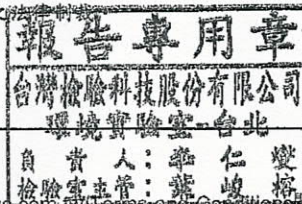 報告專用章
台灣檢驗科技股份有限公司
環境實驗室-台北
負責人：
檢驗室主管：葉